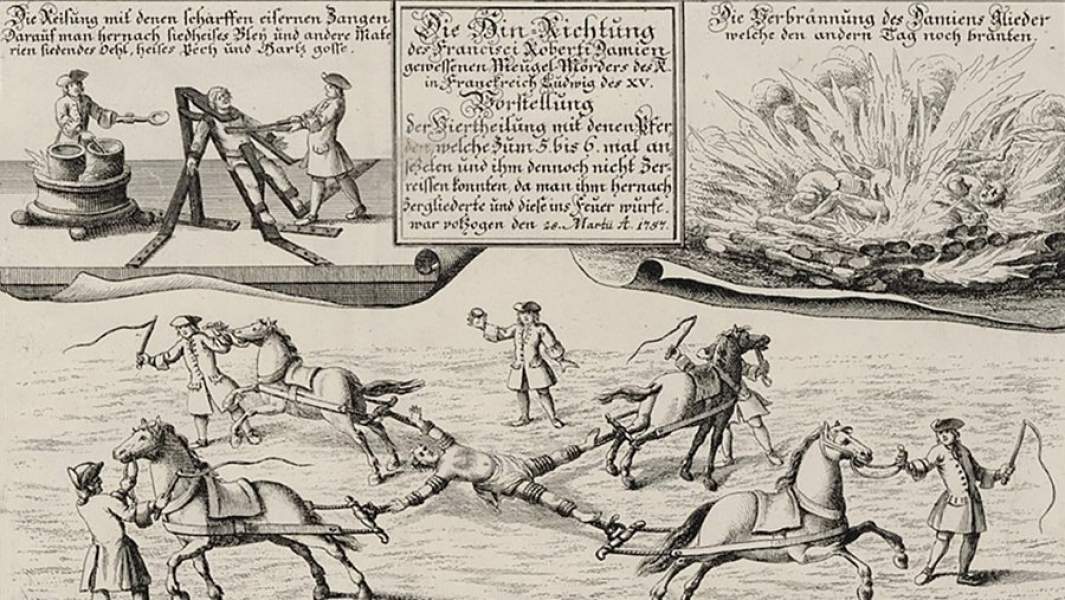 Die Reisung mit denen scharffen eisernen Zangen
Darauf man hernach siedheises Bley und andere Mate
rien siedendes Oehl, heises Pech und Hartz gosse.
Die Hin-Richtung
des Francisci Roberti Damien
gewessenen Meugel-Mörders des K.
in Franckreich Ludwig des XV.
Vorstellung
der Viertheilung mit denen Pfer,
den, welche zum 5. bis 6. mal an
sezeten und ihm dennoch nicht Zer-
reissen konnten, da man ihm hernach
Zergliederte und diese ins Feuer wurfe.
war volzogen den 28. Martii A. 1757.
Die Verbrännung des Damiens Glieder
welche den andern Tag noch branten.